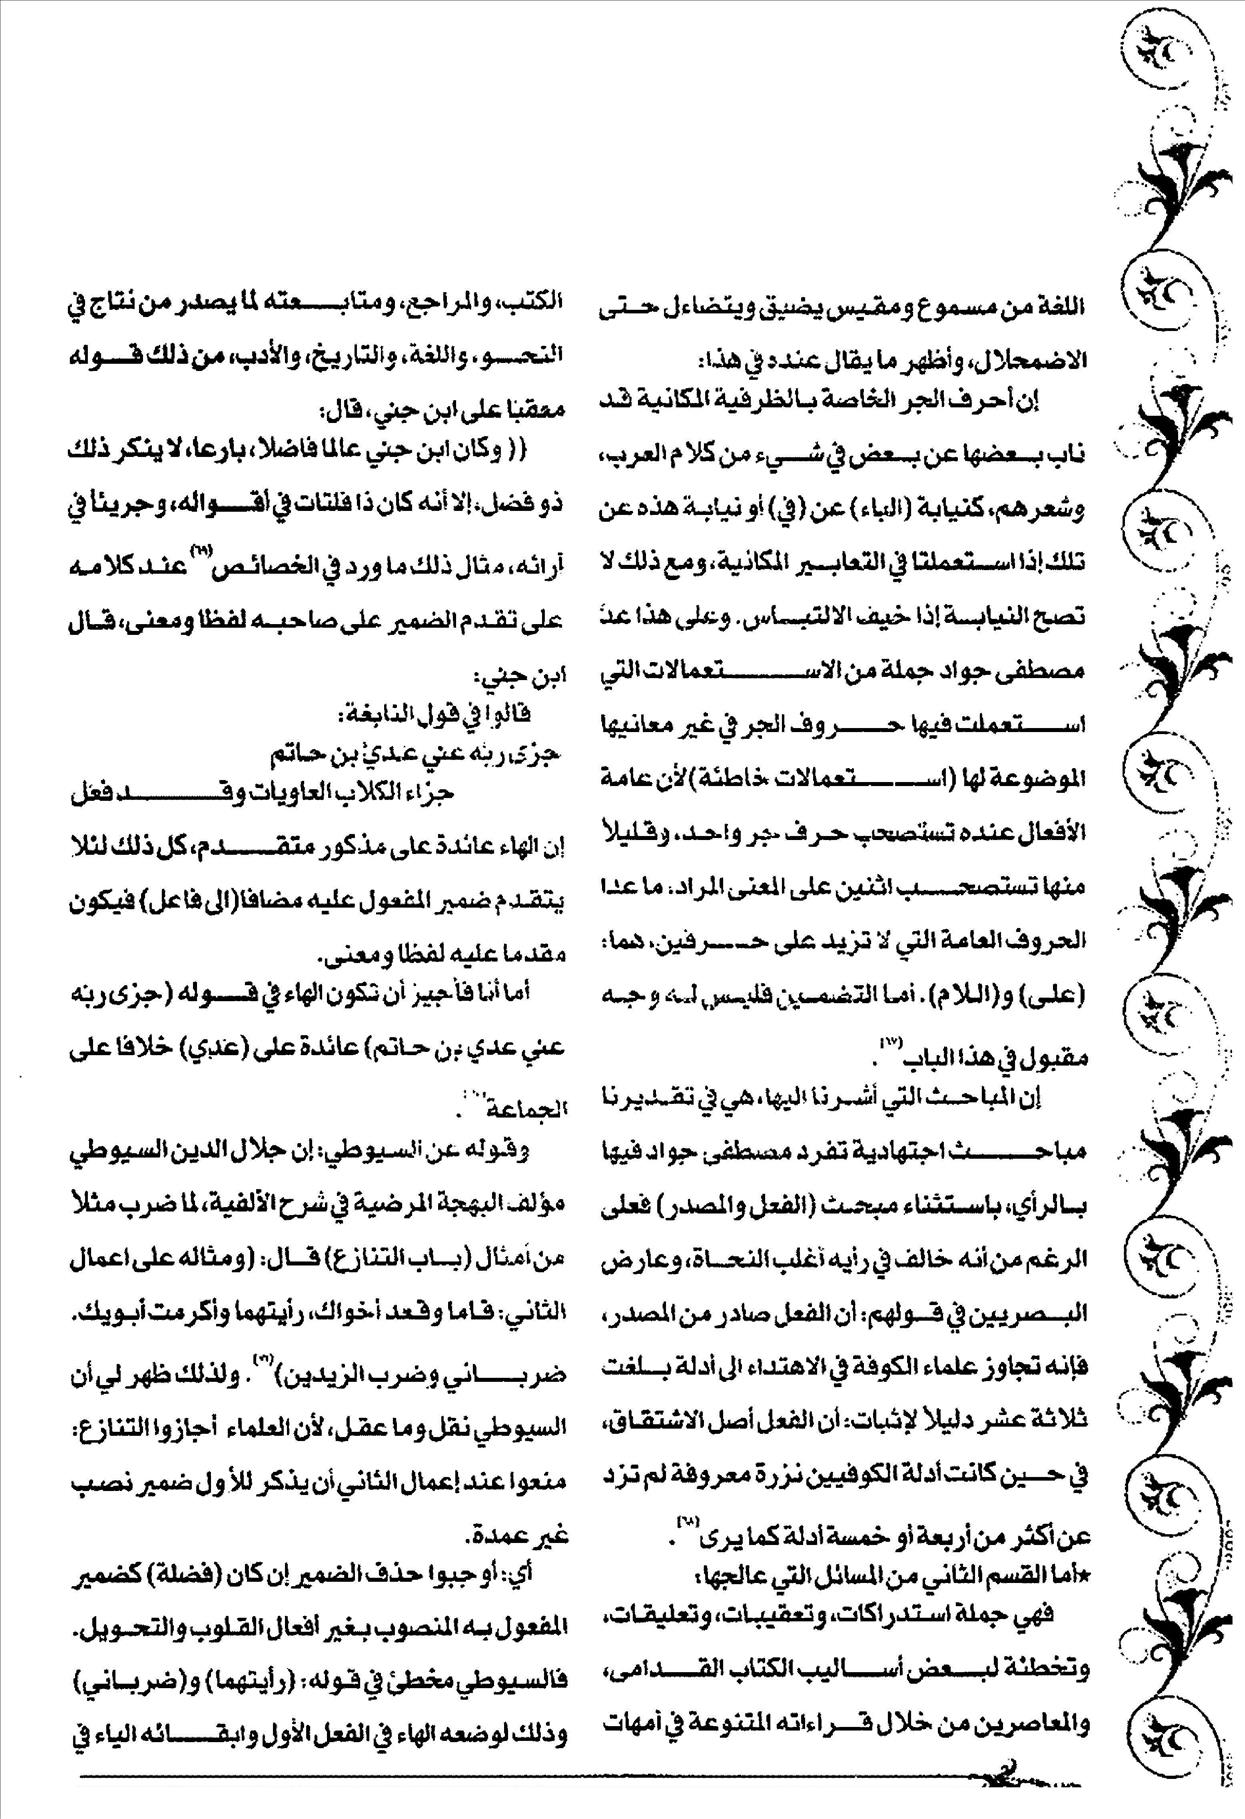 اللغة من مسموع ومقيس يضيق ويتضاءل حتى
الاضمحلال، وأظهر ما يقال عنده في هذا:
إن أحرف الجر الخاصة بالظرفية المكانية قد
ناب بعضها عن بعض في شيء من كلام العرب،
وشعرهم، كنيابة (الباء) عن (في) أو نيابة هذه عن
تلك إذا استعملتا في التعابير المكانية، ومع ذلك لا
تصح النيابة إذا خيف الالتباس. وعلى هذا عدّ
مصطفى جواد جملة من الاستعمالات التي
استعملت فيها حروف الجر في غير معانيها
الموضوعة لها (استعمالات خاطئة) لأن عامة
الأفعال عنده تستصحب حرف جر واحد، وقليلاً
منها تستصحب اثنين على المعنى المراد، ما عدا
الحروف العامة التي لا تزيد على حرفين، هما:
(على) و(اللام). أما التضمين فليس له وجه
مقبول في هذا الباب(٦٧).
إن المباحث التي أشرنا اليها، هي في تقديرنا
مباحث اجتهادية تفرد مصطفى جواد فيها
بالرأي، باستثناء مبحث (الفعل والمصدر) فعلى
الرغم من أنه خالف في رأيه أغلب النحاة، وعارض
البصريين في قولهم: أن الفعل صادر من المصدر،
فإنه تجاوز علماء الكوفة في الاهتداء الى أدلة بلغت
ثلاثة عشر دليلاً لإثبات: أن الفعل أصل الاشتقاق،
في حين كانت أدلة الكوفيين نزرة معروفة لم تزد
عن أكثر من أربعة أو خمسة أدلة كما يرى(٦٨).
*أما القسم الثاني من المسائل التي عالجها:
فهي جملة استدراكات، وتعقيبات، وتعليقات،
وتخطئة لبعض أساليب الكتاب القدامى،
والمعاصرين من خلال قراءاته المتنوعة في أمهات
الكتب، والمراجع، ومتابعته لما يصدر من نتاج في
النحو، واللغة، والتاريخ، والأدب، من ذلك قوله
معقبا على ابن جني، قال:
(( وكان ابن جني عالما فاضلا، بارعا، لا ينكر ذلك
ذو فضل، إلا أنه كان ذا فلتات في أقواله، وجريئا في
آرائه، مثال ذلك ما ورد في الخصائص(٦٩) عند كلامه
على تقدم الضمير على صاحبه لفظا ومعنى، قال
ابن جني:
قالوا في قول النابغة:
جزى ربه عني عديّ بن حاتم
جزاء الكلاب العاويات وقد فعل
إن الهاء عائدة على مذكور متقدم، كل ذلك لئلا
يتقدم ضمير المفعول عليه مضافا(الى فاعل) فيكون
مقدما عليه لفظا ومعنى.
أما أنا فأجيز أن تكون الهاء في قوله (جزى ربه
عني عدي بن حاتم) عائدة على (عدي) خلافا على
الجماعة.
وقوله عن السيوطي: إن جلال الدين السيوطي
مؤلف البهجة المرضية في شرح الألفية، لما ضرب مثلاً
من أمثال (باب التنازع) قال: (ومثاله على اعمال
الثاني: قاما وقعد أخواك، رأيتهما وأكرمت أبويك.
ضرباني وضرب الزيدين)(٧١). ولذلك ظهر لي أن
السيوطي نقل وما عقل، لأن العلماء أجازوا التنازع:
منعوا عند إعمال الثاني أن يذكر للأول ضمير نصب
غير عمدة.
أي: أوجبوا حذف الضمير إن كان (فضلة) كضمير
المفعول به المنصوب بغير أفعال القلوب والتحويل.
فالسيوطي مخطئ في قوله: (رأيتهما) و(ضرباني)
وذلك لوضعه الهاء في الفعل الأول وابقائه الياء في